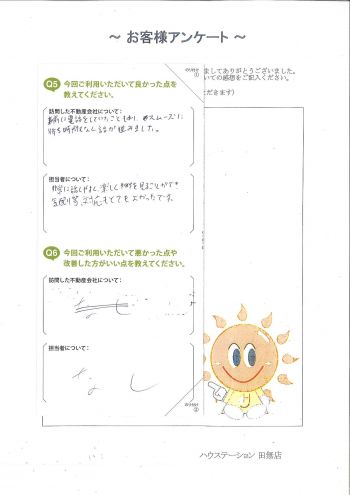 ～ お客様アンケート ～
ましてありがとうございました。
いての感想をご記入ください。
だきます)
Q5 今回ご利用いただいて良かった点を
教えてください。
訪問した不動産会社について：
事前に電話をしていたこともあり、スムーズに
待ち時間もなく話が進みました。
担当者について：
非常に話しやすく楽しく物件を見ることができ
気配り等、対応もとてもよかったです。
Q6 今回ご利用いただいて悪かった点や
改善した方がいい点を教えてください。
訪問した不動産会社について：
なし
担当者について：
なし
ハウステーション 田無店